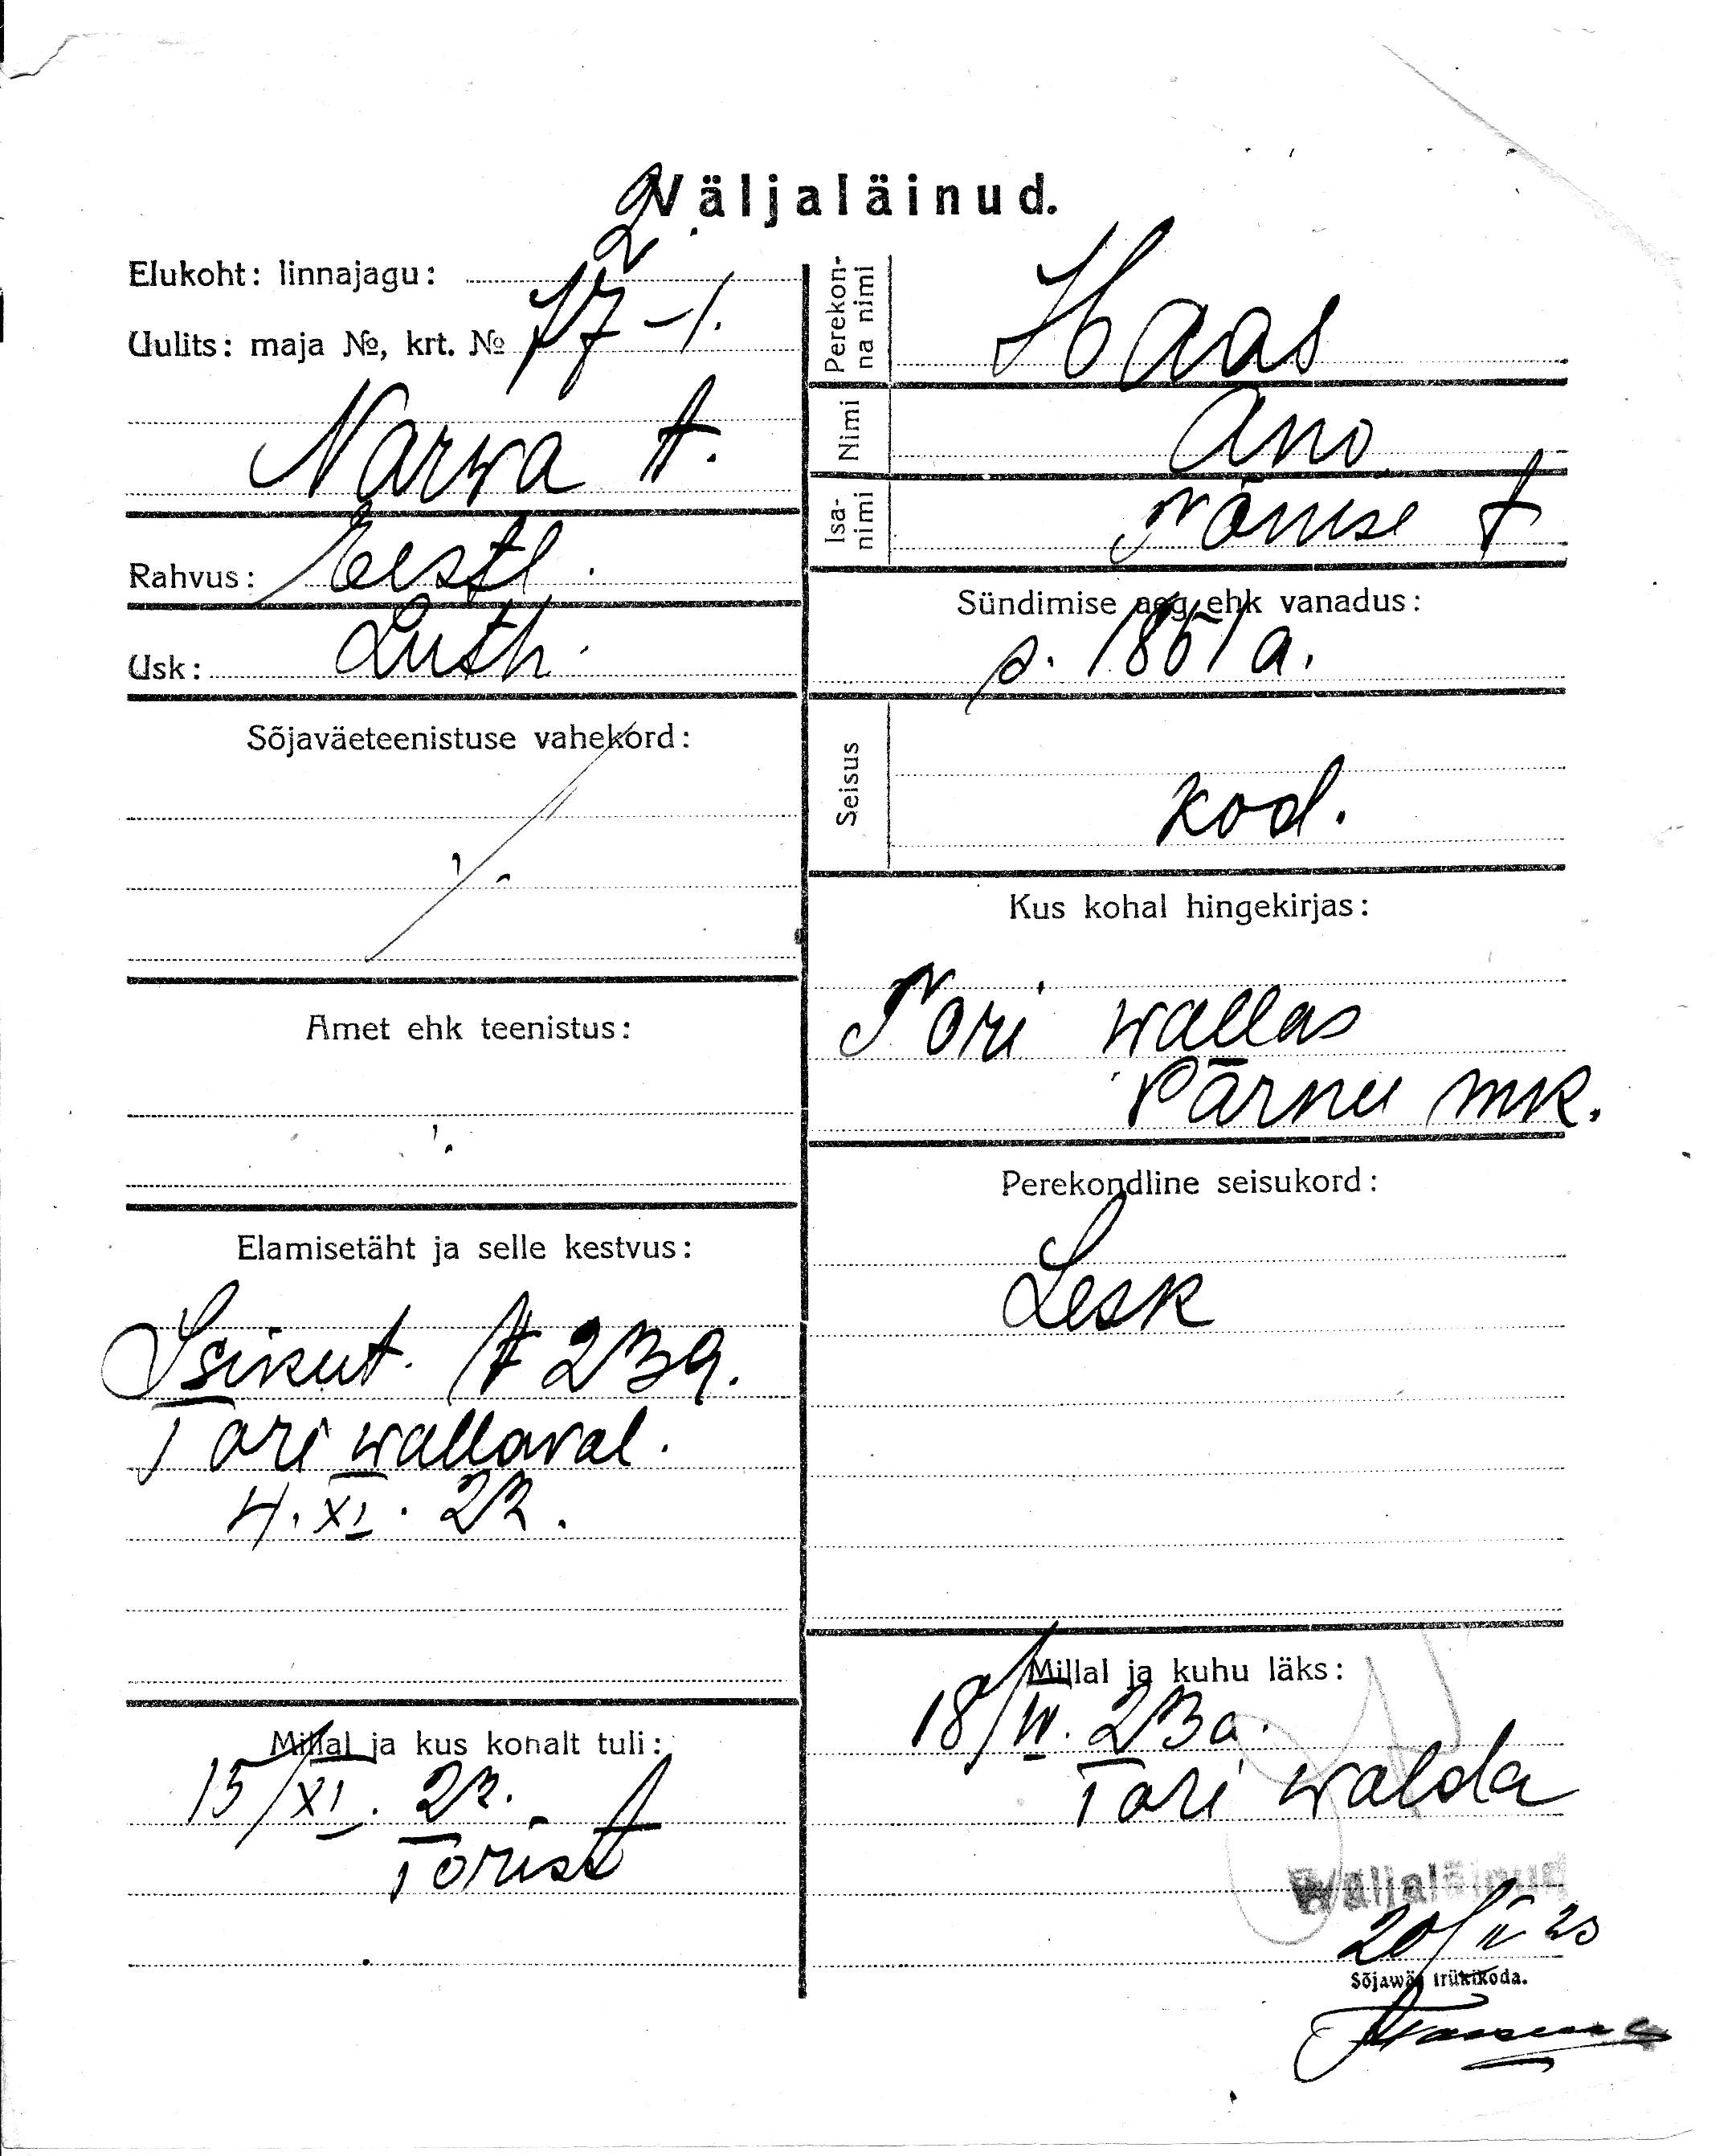 Väljaläinud.
2
Elukoht: linnajagu:
Uulits: maja №, krt. № 77-1.
Narwa t.
Rahvus: Eestl.
Usk: Luth.
Sõjaväeteenistuse vahekord:
Amet ehk teenistus:
Elamisetäht ja selle kestvus:
Isikut. № 239.
Tori wallaval.
4. XI. 22.
Millal ja kus kohalt tuli:
15/XI. 22.
Torist
Perekonna nimi
Haas
Nimi
Ano
Isanimi
Tõnise t
Sündimise aeg ehk vanadus:
s. 1851 a.
Seisus
kod.
Kus kohal hingekirjas:
Tori wallas
Pärnu mk.
Perekondline seisukord:
Lesk
Millal ja kuhu läks:
18/IV. 23 a.
Tori walda
Wäljaläinud
20/IV 23
Sõjawäe trükikoda.